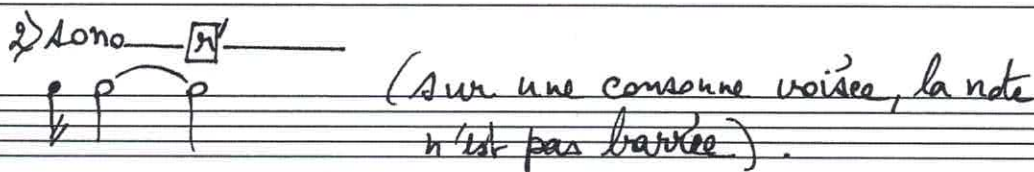 2) sono [r]
(sur une consonne voisée, la note
n'est pas barrée).